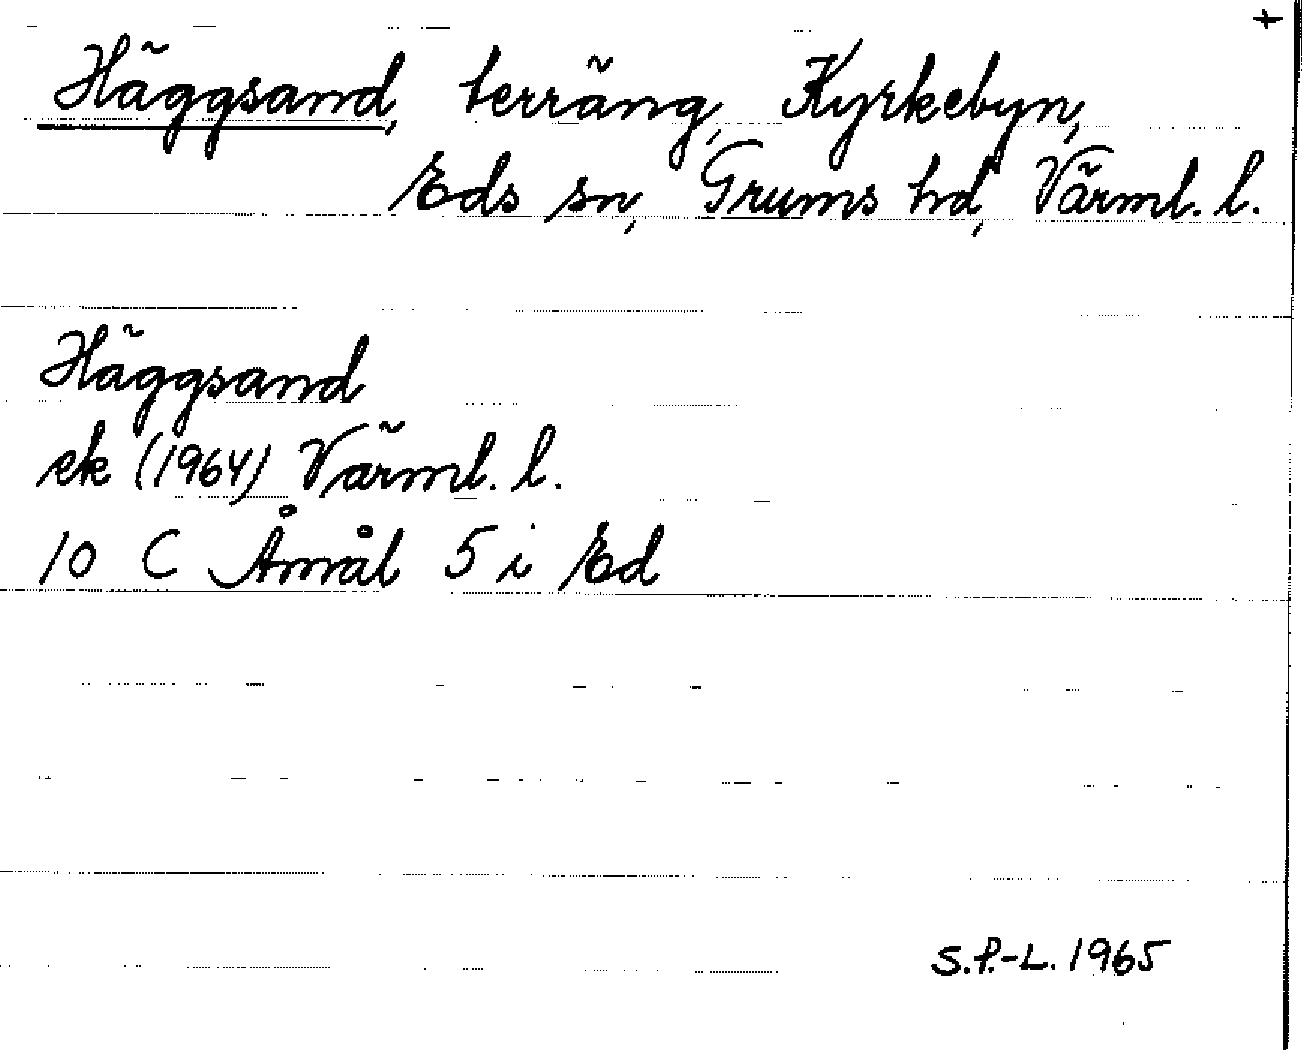 +
Häggsand, terräng, Kyrkebyn,
Eds sn, Grums hd, Värml. l.
Häggsand
ek (1964) Värml. l.
10 C Åmål 5 i Ed
S.P.-L. 1965